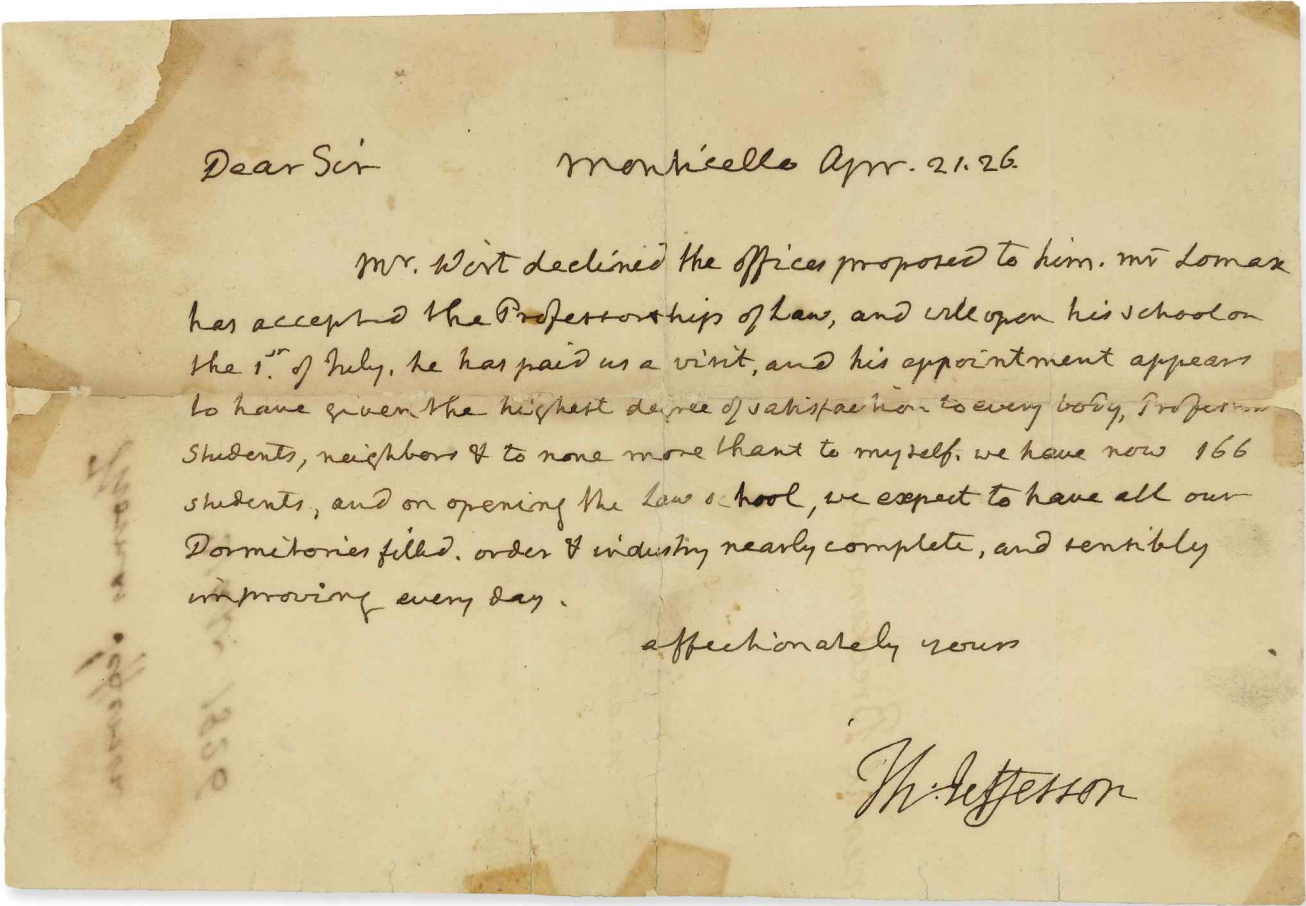 Dear Sir Monticello Apr. 21. 26.
Mr. Wirt declined the offices proposed to him. mr Lomax
has accepted the Professorship of Law, and will open his school on
the 1st. of July. he has paid us a visit, and his appointment appears
to have given the highest degree of satisfaction to every body, Professors
students, neighbors & to none more thant to myself. we have now 166
students, and on opening the Law school, we expect to have all our
Dormitories filled. order & industry nearly complete, and sensibly
improving every day.
affectionately yours
Th: Jefferson
Thomas Jefferson
1826